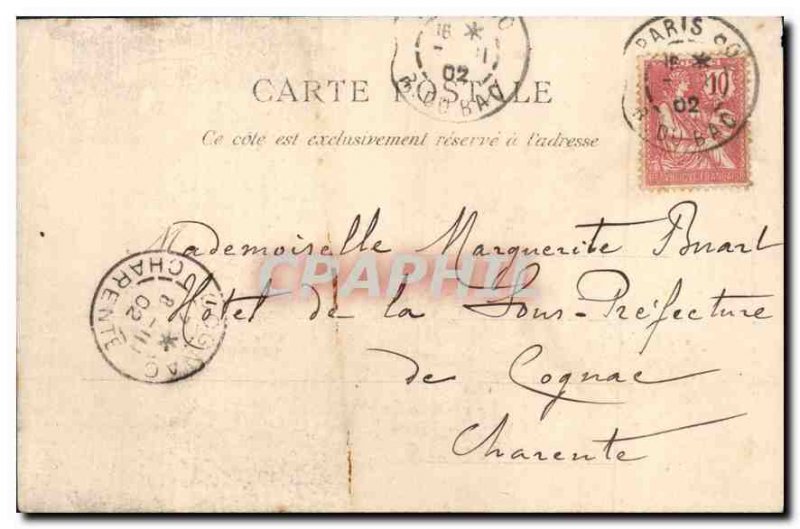 CARTE POSTALE
Ce côté est exclusivement réservé à l'adresse
PARIS
02
R. DU BAC
PARIS
02
R. DU BAC
10
REPUBLIQUE FRANÇAISE
Mademoiselle Marguerite
Hôtel de la Sous-Préfecture
de Cognac
Charente
COGNAC
8
02
CHARENTE
CPRAPHIL